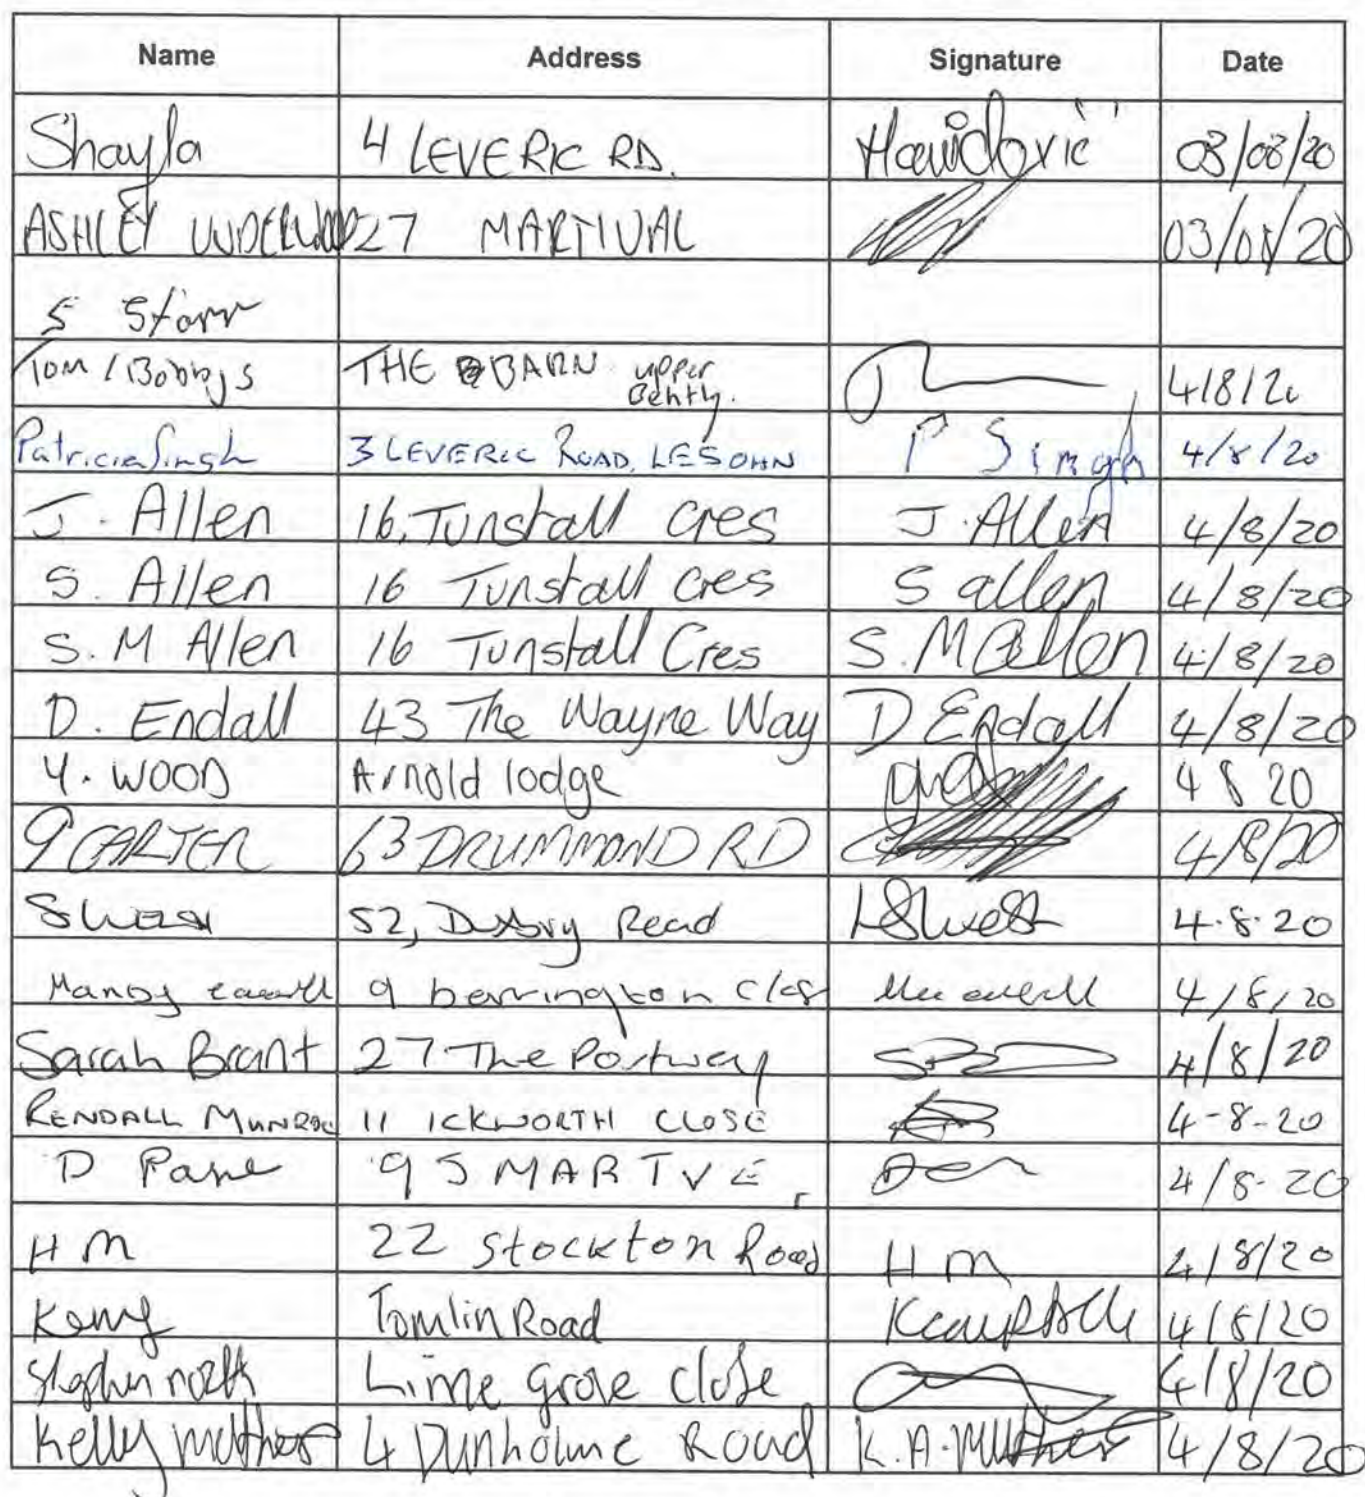 Name Address Signature Date
Shayla 4 LEVERIC RD. Hamidovic 03/08/20
ASHLEY UNDERWOOD 27 MARTIVAL 03/08/20
S Starr
Tom / Bobbys THE BARN upper Bently. 4/8/20
Patricia Singh 3 LEVERIC ROAD, LE5 OHN P Singh 4/8/20
J. Allen 16, Tunstall Cres J. Allen 4/8/20
S. Allen 16 Tunstall Cres S allen 4/8/20
S. M Allen 16 Tunstall Cres S. M Allen 4/8/20
D. Endall 43 The Wayne Way D Endall 4/8/20
Y. WOOD Arnold lodge 4 8 20
CARTER 63 DRUMMOND RD 4/8/20
S West 52, Road West 4.8.20
Mandy 9 berrington clos 4/8/20
Sarah Brant 27 The Portway 4/8/20
RENDALL MUNROE 11 ICKWORTH CLOSE 4-8-20
D Pane 95 MARTVE 4/8.20
H M 22 Stockton Road H M 4/8/20
Kerry Tomlin Road KCampbell 4/8/20
Stephen north Lime grove close 4/8/20
Kelly mather 4 Dunholme Road K. A. Mather 4/8/20